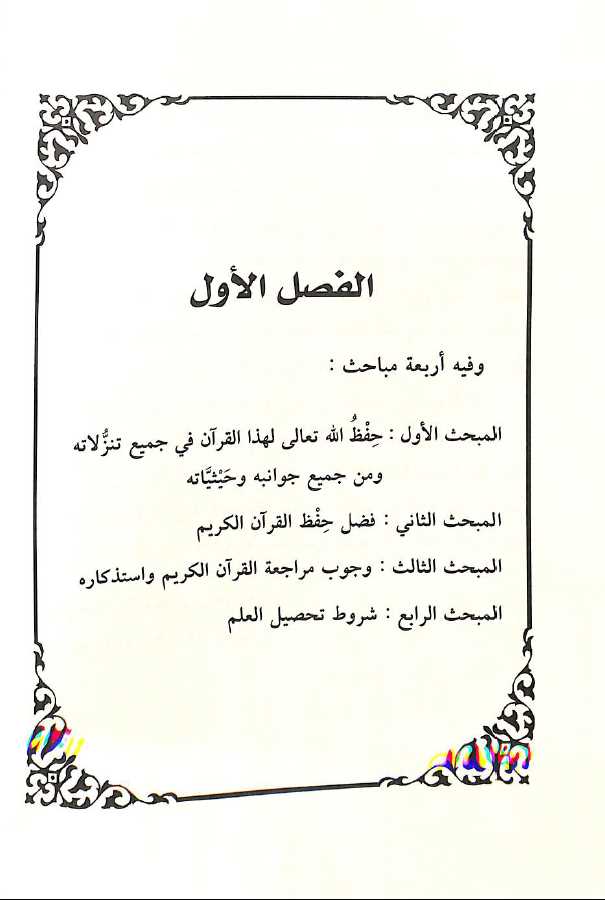 الفصل الأول
وفيه أربعة مباحث :
المبحث الأول : حِفْظُ الله تعالى لهذا القرآن في جميع تنزُّلاته
ومن جميع جوانبه وحَيْثيَّاته
المبحث الثاني : فضل حِفْظ القرآن الكريم
المبحث الثالث : وجوب مراجعة القرآن الكريم واستذكاره
المبحث الرابع : شروط تحصيل العلم